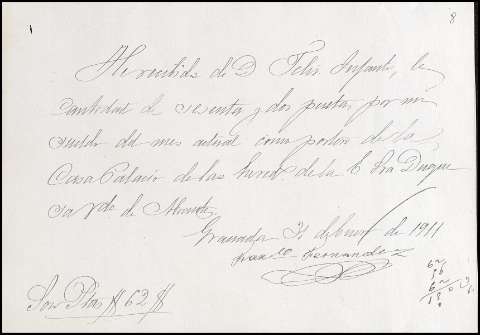 8
He recibido de D. Felix Infante, la
cantidad de sesenta y dos pesetas, por mi
sueldo del mes actual como portero de la
Casa Palacio de las de la E. Sra Duque
sa de
Granada 31 de Enero de 1911
Fernandez
Son Ptas # 62 #